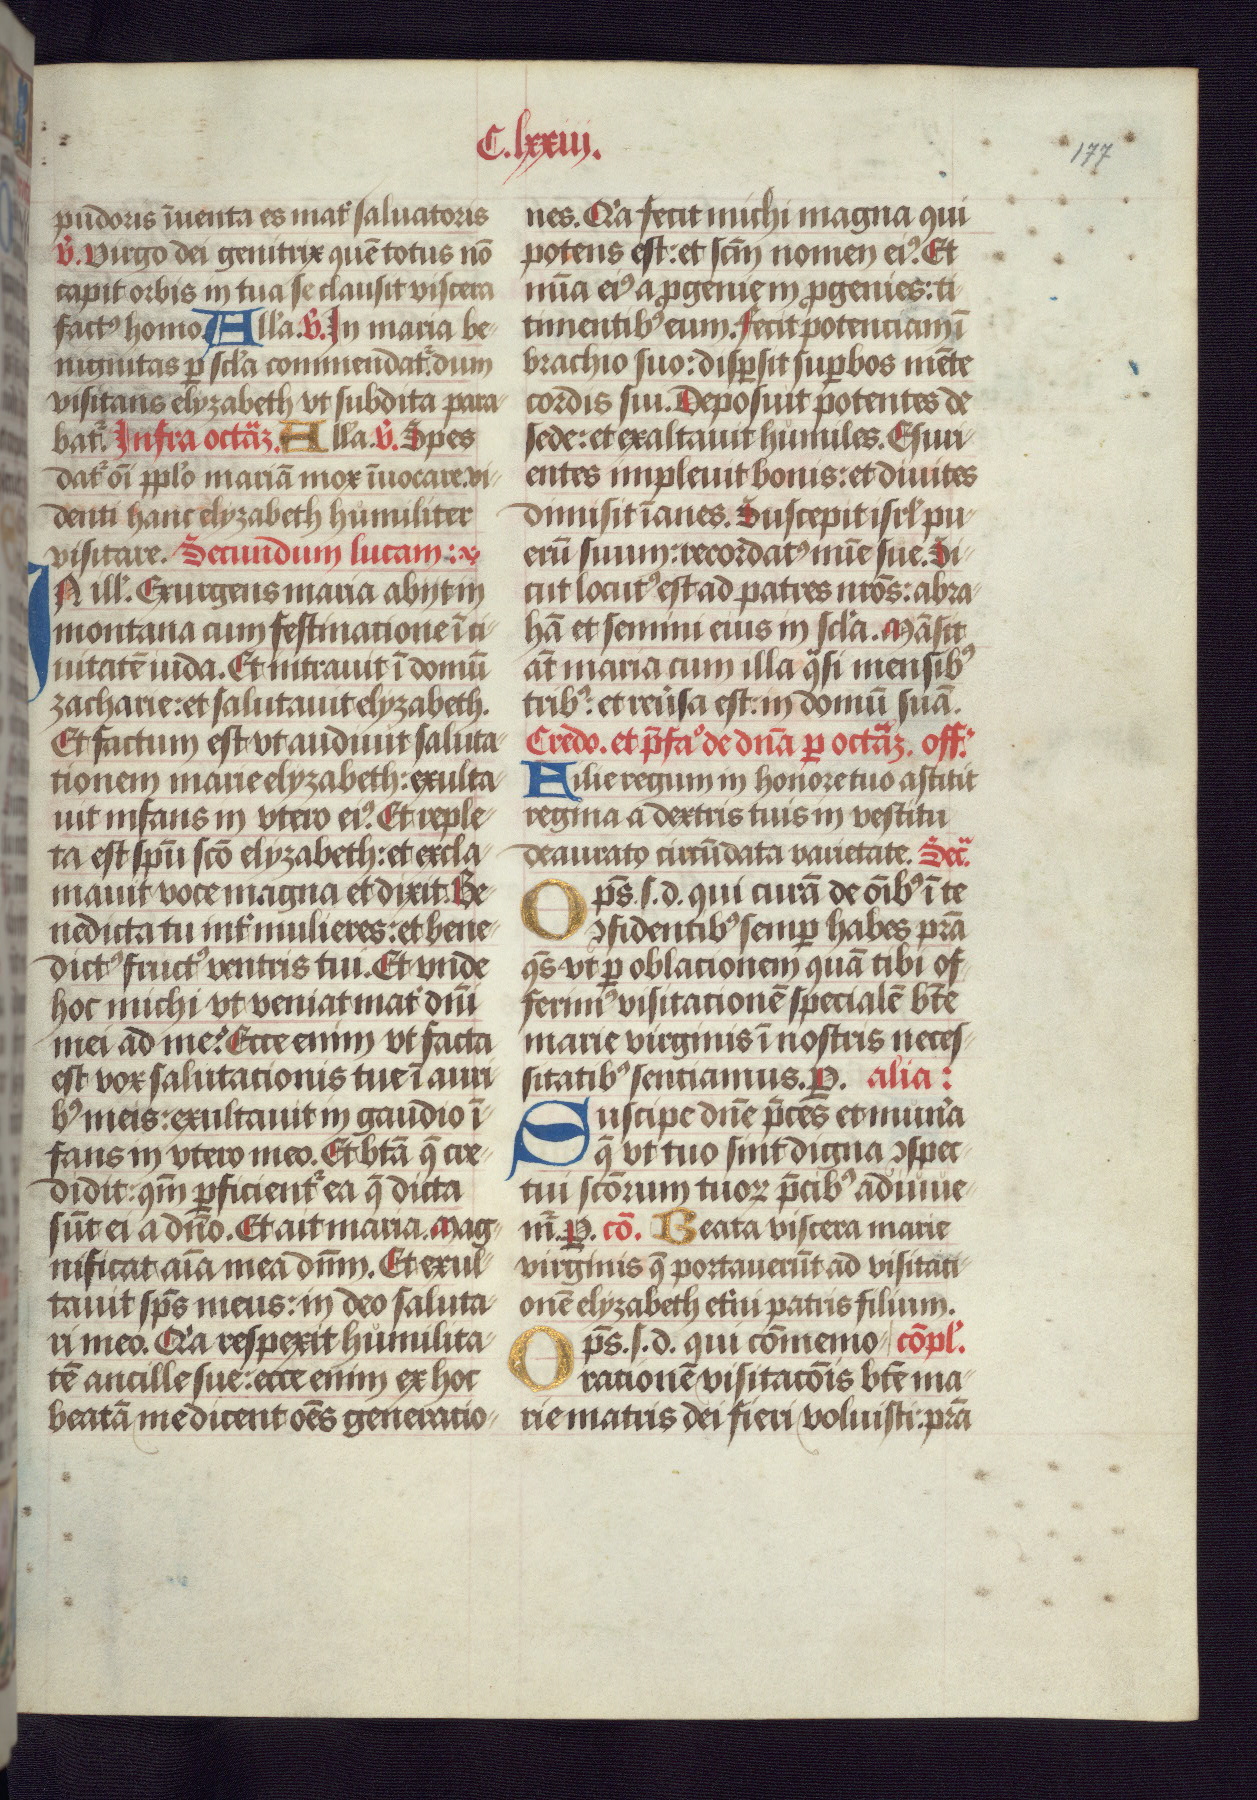 C.lxxiii.
177
pudoris īuenta es mat᷑ saluatoris
v̄. Virgo dei genitrix quē totus nō
capit orbis in tua se clausit viscera
factꝰ homo. All'a. v̄. In maria be-
nignitas ꝑ scl'a commendat᷑: dum
visitans elyzabeth vt subdita para-
bat᷑. Infra octaꝫ. All'a. v̄. Spes
dat᷑ oī ppl'o mariā mox īuocare. vi-
denti hanc elyzabeth humiliter
visitare. Secundum lucam :
IN ill'. Exurgens maria abijt in
montana cum festinatione ī ci-
uitatē iuda. Et intrauit ī domū
zacharie: et salutauit elyzabeth.
Et factum est vt audiuit saluta-
tionem marie elyzabeth: exulta-
uit infans in vtero eiꝰ. Et reple-
ta est spū scō elyzabeth: et excla-
mauit voce magna et dixit. Be-
nedicta tu int᷑ mulieres: et bene-
dictꝰ fructꝰ ventris tui. Et vnde
hoc michi vt veniat mat᷑ dn̄i
mei ad me? Ecce enim vt facta
est vox salutacionis tue ī auri-
bꝰ meis: exultauit in gaudio ī-
fans in vtero meo. Et btā q̄ cre-
didit: qm̄ ꝑficient᷑ ea q̄ dicta
sūt ei a dn̄o. Et ait maria. Mag-
nificat aīa mea dn̄m. Et exul-
tauit sp̄s meus: in deo saluta-
ri meo. Q'a respexit humilita-
tē ancille sue: ecce enim ex hoc
beatā me dicent oēs generatio-
nes. Q'a fecit michi magna qui
potens est: et sct̄m nomen eiꝰ. Et
mīa eiꝰ a ꝓgenie in ꝓgenies: ti-
mentibꝰ eum. Fecit potenciam ī
brachio suo: disꝑsit suꝑbos mēte
cordis sui. Deposuit potentes de
sede: et exaltauit humiles. Esuri-
entes impleuit bonis: et diuites
dimisit īanes. Suscepit isrl' pu-
erū suum: recordatꝰ mīe sue. Si-
cut locutꝰ est ad patres nr̄os: abra-
hā et semini eius in scl'a. Māsit
at̄ maria cum illa q̄si mensibꝰ
tribꝰ: et reu'sa est: in domū suā.
Credo. et p̄fa° de dn̄a ꝑ octaꝫ. off.
Filie regum in honore tuo astitit
regina a dextris tuis in vestitu
deaurato circūdata varietate. Sec̄.
Op̄s. s. d. qui curā de oībꝰ ī te
ↄfidentibꝰ semꝑ habes pr̄a
qs̄ vt ꝑ oblacionem quā tibi of-
ferimꝰ visitacionē specialē bt̄e
marie virginis ī nostris neces-
sitatibꝰ senciamus. P. alia :
Suscipe dn̄e p̄ces et mun'a
q̄ vt tuo sint digna ↄspec-
tui scōrum tuoꝝ p̄cibꝰ adiuue-
m᷑. P. cō. Beata viscera marie
virginis q̄ portauerūt ad visitati-
onē elyzabeth et'ni patris filium.
Op̄s. s. d. qui cōmemo- cōpl'.
rationē visitacōis bt̄e ma-
rie matris dei fieri voluisti: pr̄a